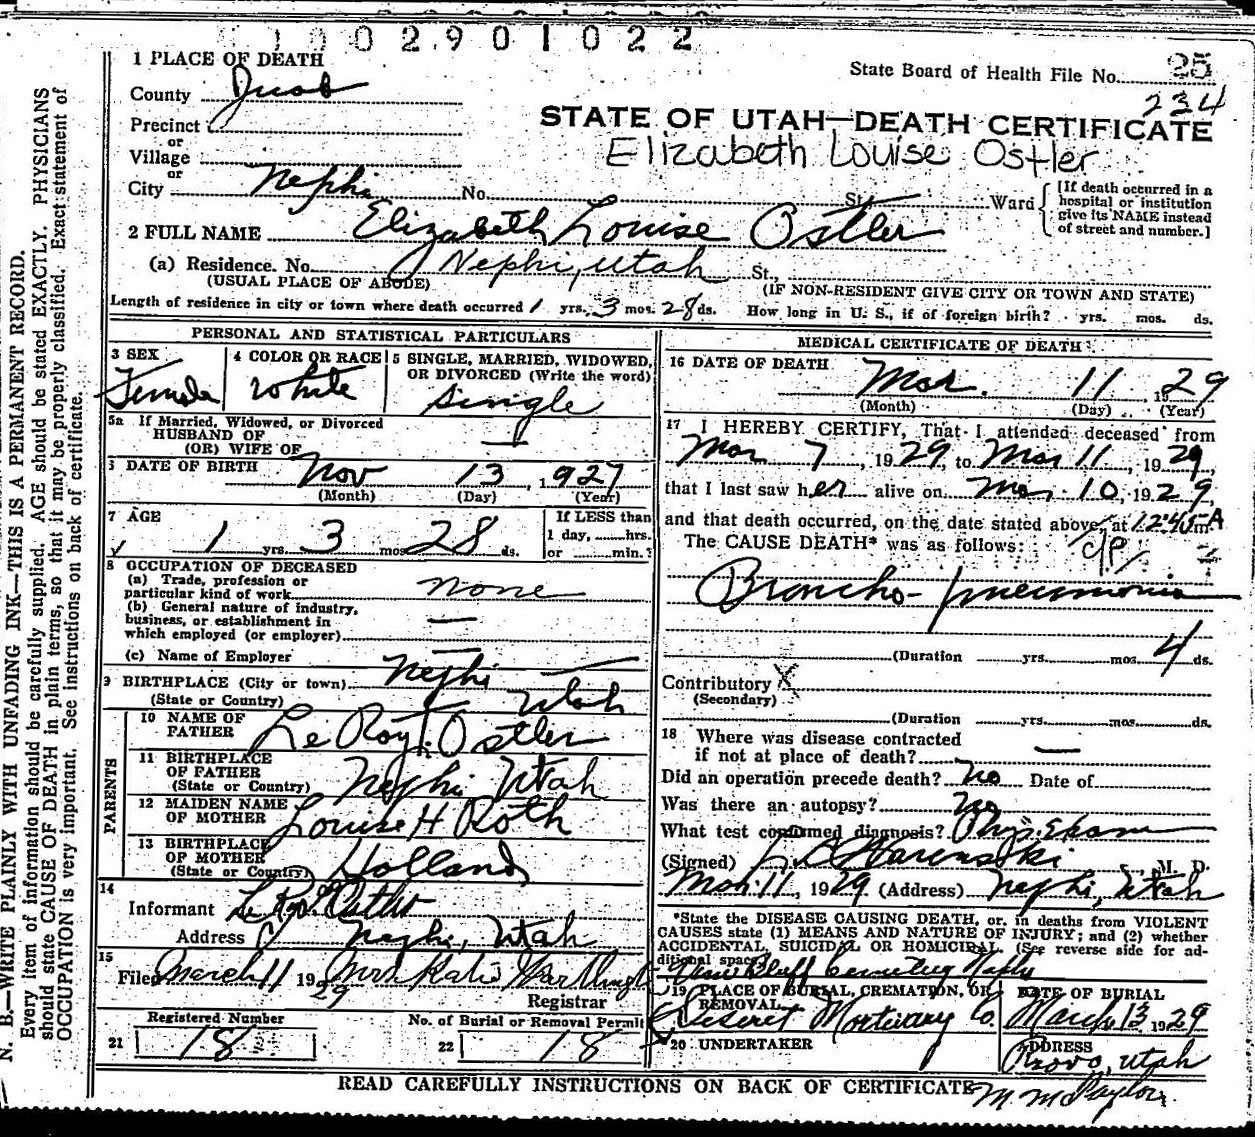 1002901022
1 PLACE OF DEATH
State Board of Health File No. 25
234
County Juab
Precinct
or
Village
or
City Nephi No. St. Ward
[If death occurred in a hospital or institution give its NAME instead of street and number.]
STATE OF UTAH—DEATH CERTIFICATE
Elizabeth Louise Ostler
2 FULL NAME Elizabeth Louise Ostler
(a) Residence. No. Nephi, Utah St.,
(USUAL PLACE OF ABODE) (IF NON-RESIDENT GIVE CITY OR TOWN AND STATE)
Length of residence in city or town where death occurred 1 yrs. 3 mos. 28 ds. How long in U. S., if of foreign birth? yrs. mos. ds.
PERSONAL AND STATISTICAL PARTICULARS
3 SEX 4 COLOR OR RACE 5 SINGLE, MARRIED, WIDOWED, OR DIVORCED (Write the word)
Female White Single
5a If Married, Widowed, or Divorced
HUSBAND OF
(OR) WIFE OF —
6 DATE OF BIRTH Nov 13 1927
(Month) (Day) (Year)
7 AGE If LESS than
1 yrs. 3 mos. 28 ds. 1 day, hrs.
or min.?
8 OCCUPATION OF DECEASED
(a) Trade, profession or
particular kind of work none
(b) General nature of industry,
business, or establishment in
which employed (or employer) —
(c) Name of Employer —
9 BIRTHPLACE (City or town) Nephi
(State or Country) Utah
PARENTS
10 NAME OF
FATHER LeRoy T. Ostler
11 BIRTHPLACE
OF FATHER
(State or Country) Nephi Utah
12 MAIDEN NAME
OF MOTHER Louise H Roth
13 BIRTHPLACE
OF MOTHER
(State or Country) Holland
14
Informant
Address Nephi, Utah
15
Filed March 11 1929 Mrs Katie
Registrar
Registered Number No. of Burial or Removal Permit
21 18 22 18
MEDICAL CERTIFICATE OF DEATH
16 DATE OF DEATH Mar. 11 1929
(Month) (Day) (Year)
17 I HEREBY CERTIFY, That I attended deceased from
Mar 7, 1929, to Mar 11, 1929,
that I last saw her alive on Mar 10, 1929,
and that death occurred, on the date stated above, at 12:45 A m.
The CAUSE DEATH* was as follows:
Broncho-pneumonia
(Duration yrs. mos. 4 ds.
Contributory X
(Secondary)
(Duration yrs. mos. ds.
18 Where was disease contracted
if not at place of death? —
Did an operation precede death? no Date of
Was there an autopsy? No
What test confirmed diagnosis? Phys. Exam
(Signed) M. D.
Mar. 11, 1929 (Address) Nephi, Utah
*State the DISEASE CAUSING DEATH, or, in deaths from VIOLENT
CAUSES state (1) MEANS AND NATURE OF INJURY; and (2) whether
ACCIDENTAL, SUICIDAL OR HOMICIDAL. (See reverse side for ad-
ditional space)
Vine Bluff Cemetery Nephi
19 PLACE OF BURIAL, CREMATION, OR REMOVAL DATE OF BURIAL
Deseret Mortuary Co. March 13 1929
20 UNDERTAKER ADDRESS
Provo, Utah
READ CAREFULLY INSTRUCTIONS ON BACK OF CERTIFICATE
N. B.—WRITE PLAINLY WITH UNFADING INK—THIS IS A PERMANENT RECORD.
Every item of information should be carefully supplied. AGE should be stated EXACTLY. PHYSICIANS
should state CAUSE OF DEATH in plain terms, so that it may be properly classified. Exact statement of
OCCUPATION is very important. See instructions on back of certificate.